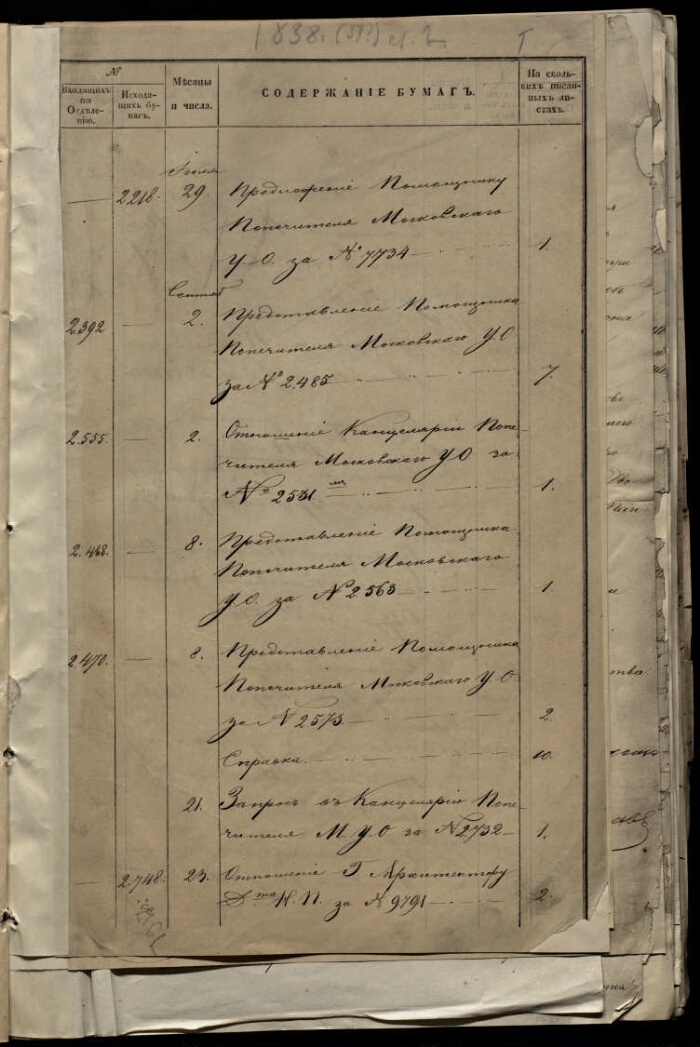 1838.
№
Входящихъ по Отдѣленію.
Исходящихъ бумагъ.
Мѣсяцы и числа.
СОДЕРЖАНІЕ БУМАГЪ.
На сколькихъ писанныхъ листахъ.
Іюля
2218. 29 Предложеніе Помощнику
Попечителя Московскаго
У.О. за № 7734 1.
Сентяб
2392 2. Представленіе Помощника
Попечителя Московскаго У.О
за № 2485 7.
2.555. 2. Отношеніе Канцеляріи Попе
чителя Московскаго У.О. за
№ 1.
8. Представленіе Помощника
Попечителя Московскаго
У.О. за № 2563 1.
2.470. 8. Представленіе Помощника
Попечителя Московскаго У.О
за № 2573 2.
Справка 10.
21. Запросъ въ Канцелярію Попе
чителя М.У.О. за № 2732 1.
2.748. 23. Отношеніе Г Архитектору
Дта Н.П. за № 9791 2.